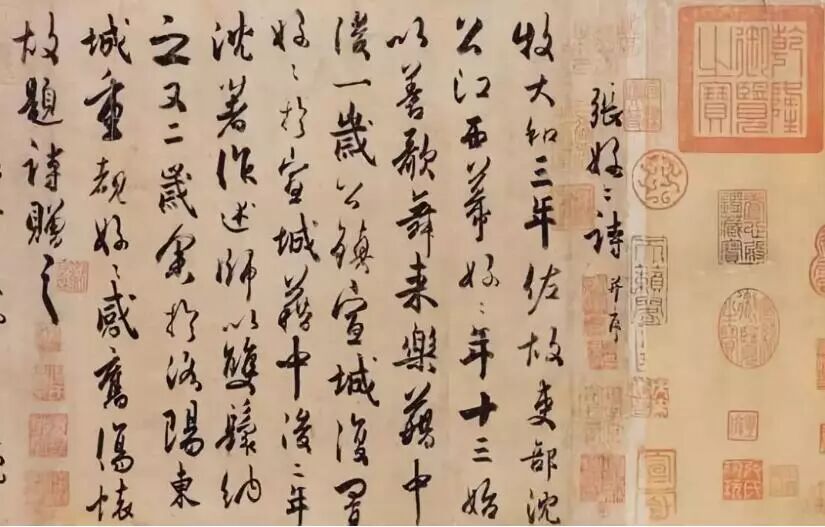 乾隆御覽之寶
天籟閣
張好〻詩 并序
牧大和三年佐故吏部沈
公江西幕好〻年十三始
以善歌舞來樂籍中
後一歲公鎮宣城復置
好〻於宣城籍中後二年
沈著作述師以雙鬟納
之又二歲余於洛陽東
城重覩好〻感舊傷懷
故題詩贈之